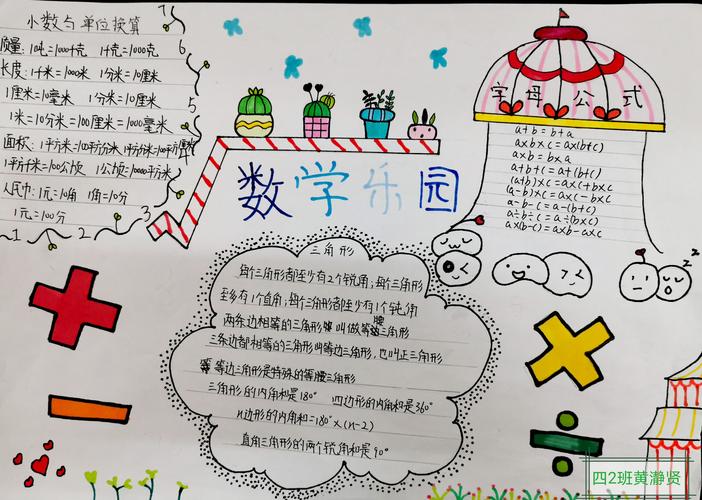 小数与单位换算
质量：1吨=1000千克 1千克=1000克
长度：1千米=1000米 1分米=10厘米
1厘米=10毫米 1分米=10厘米
1米=10分米=100厘米=1000毫米
面积：1平方米=100平方分米 1平方分米=100平方厘米
1平方千米=100公顷 1公顷=10000平方米
人民币：1元=10角 1角=10分
1元=100分
1 2 3 5 6 7
数学乐园
字母公式
a+b=b+a
a×b×c=a×(b×c)
a×b=b×a
a+b+c=a+(b+c)
(a+b)×c=a×c+b×c
(a-b)×c=a×c-b×c
a-b-c=a-(b+c)
a÷b÷c=a÷(b×c)
a×(b-c)=a×b-a×c
z z
三角形
每个三角形都至少有2个锐角，每个三角形
至多有1个直角；每个三角形都至多有1个钝角
两条边相等的三角形叫做等腰三角形
三条边都相等的三角形叫等边三角形，也叫正三角形
等边三角形是特殊的等腰三角形
三角形的内角和是180° 四边形的内角和是360°
n边形的内角和=180°×(n-2)
直角三角形的两个锐角和是90°
四2班黄瀞贤